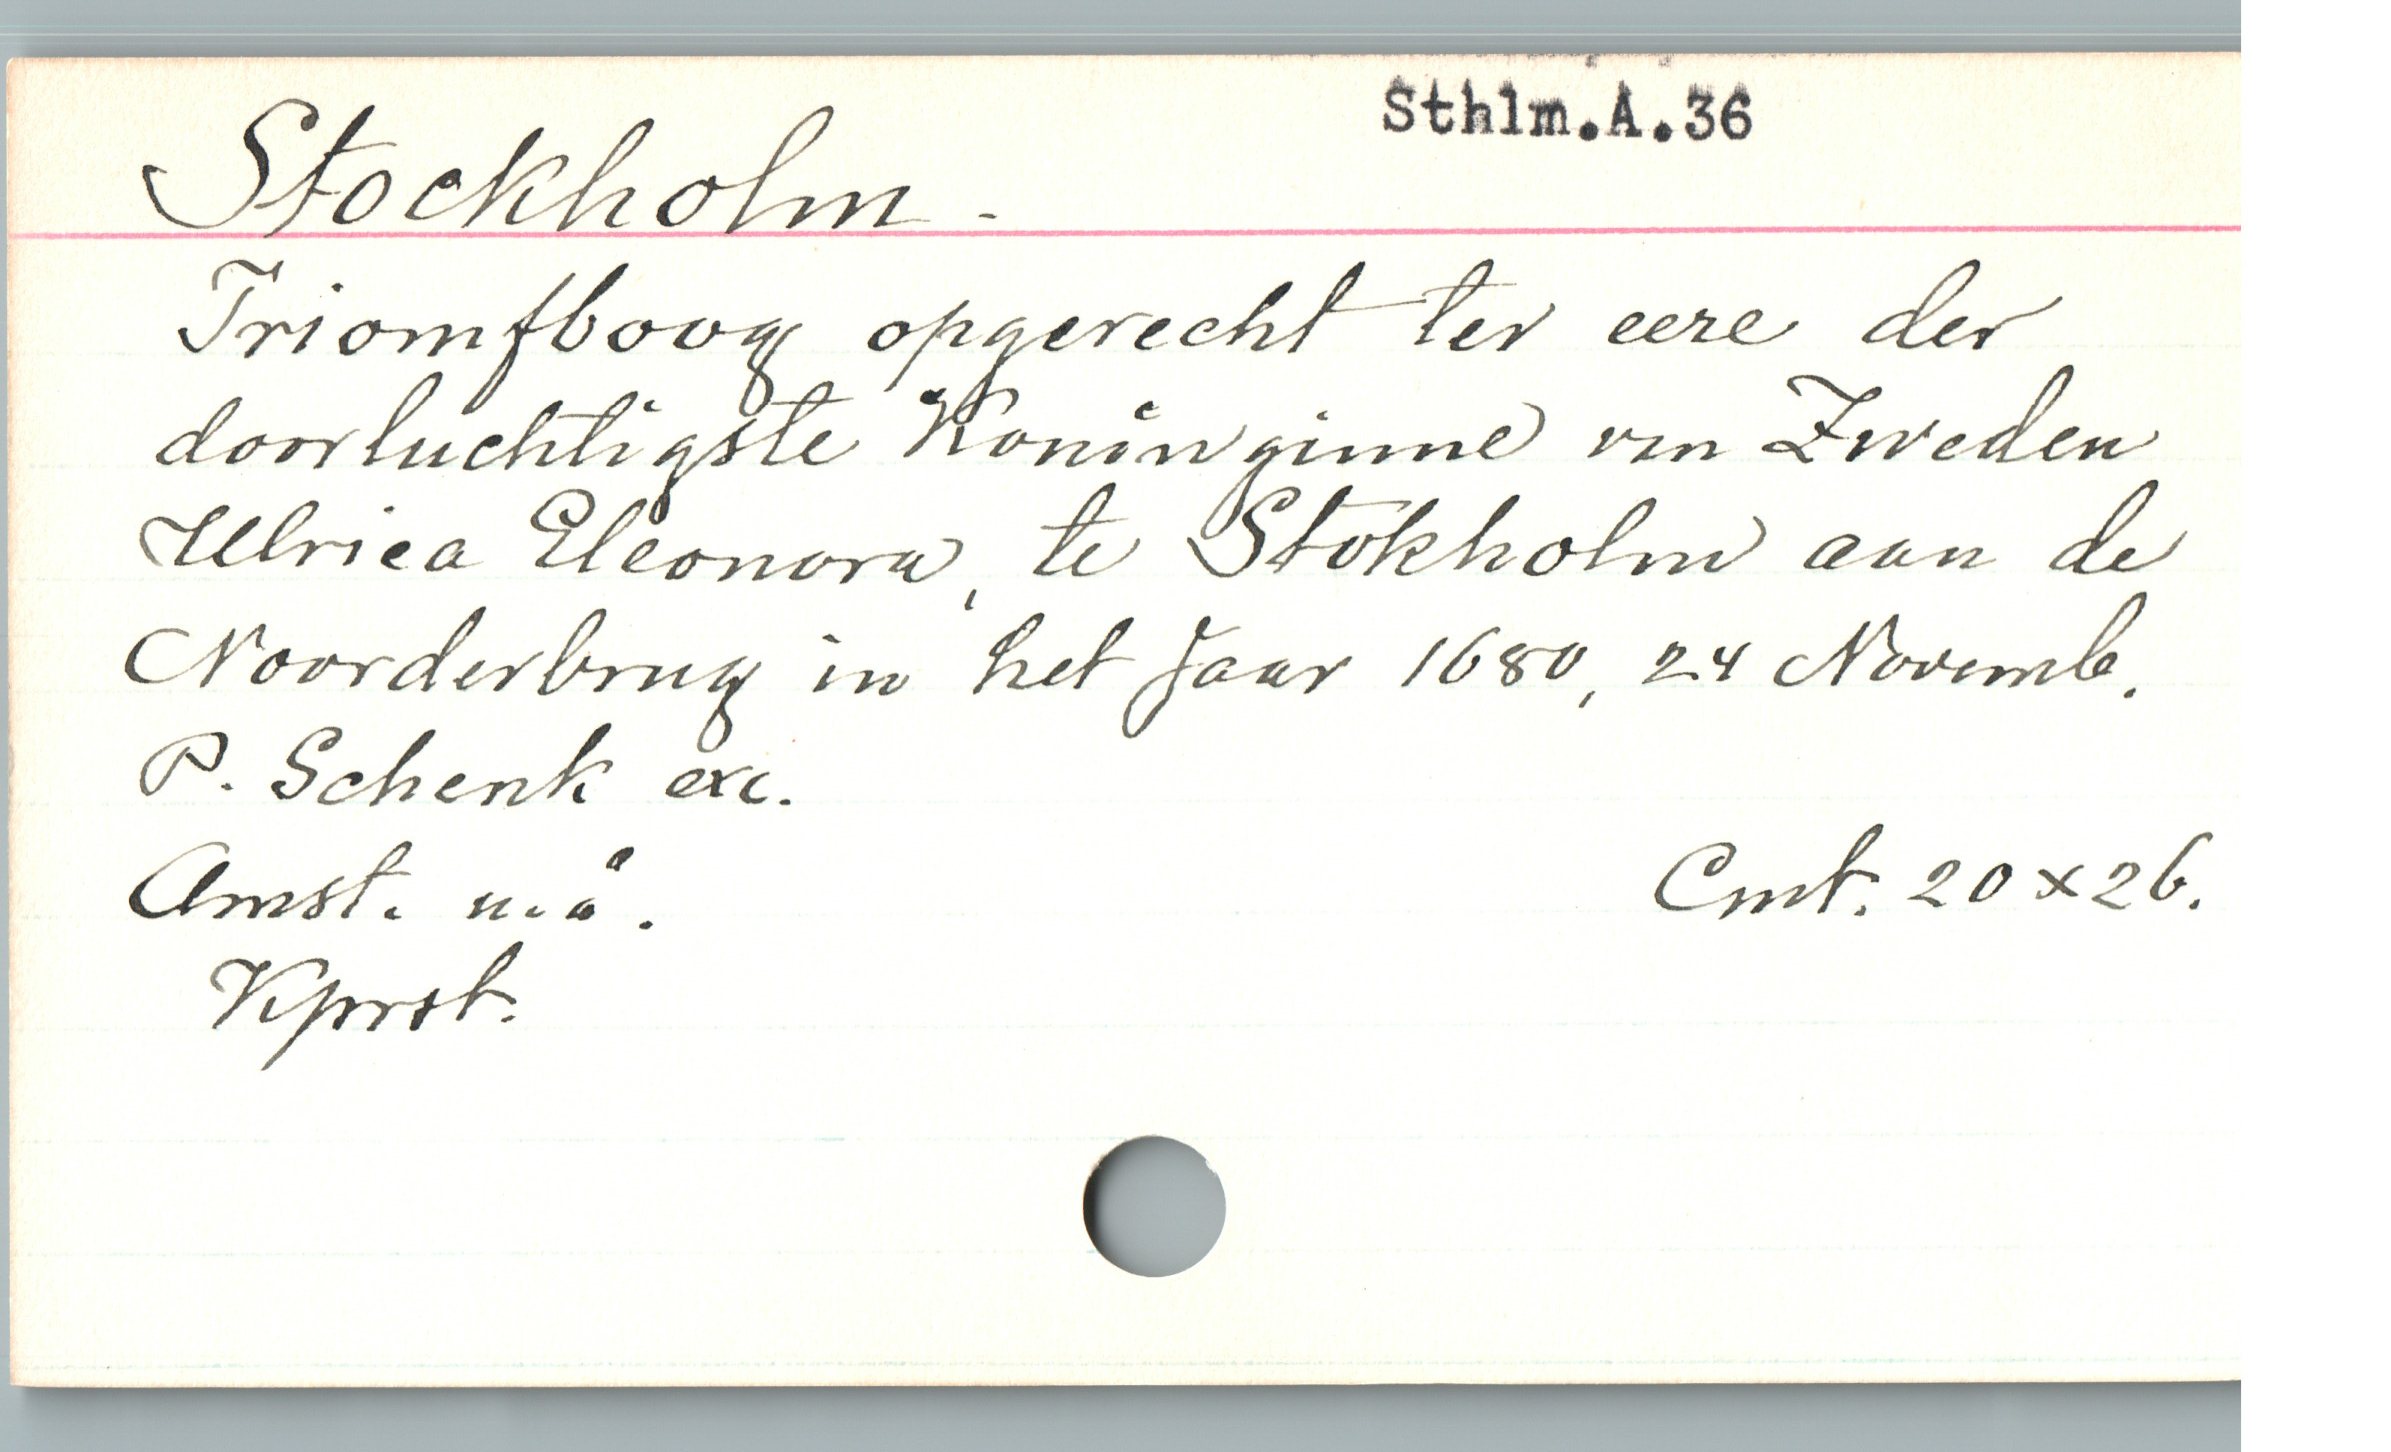 Sthlm.A.36
Stockholm.
Triomfboog opgerecht ter eere der
doorluchtigste Koninginne van Zweden
Ulrica Eleonora, te Stokholm aan de
Noorderbrug in het Jaar 1680, 24 Novemb.
P. Schenk exc.
Amst. u.å. Cmt. 20 x 26.
Kprst.